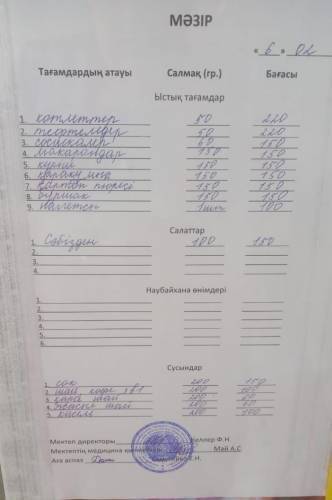 МӘЗІР
« 6 » 02
Тағамдардың атауы Салмақ (гр.) Бағасы
Ыстық тағамдар
1. котлеттер 50 220
2. тефтелдер 50 220
3. сосискалар 60 150
4. макарондар 150 150
5. күріш 150 150
6. қарақұмық 150 150
7. картоп пюресі 150 150
8. бұршақ 150 150
9. наггетсы 1шт 100
Салаттар
1. Сәбізден 100 150
2.
3.
4.
Наубайхана өнімдері
1.
2.
3.
4.
5.
6.
Сусындар
1. сок 200 150
2. шай, кофе 3в1 200
3. қара шай 200
4. шай 200
5. кисель 200 100
Мектеп директоры Геллер Ф.Н.
Мектептің медицина Май А.С.
Аға аспаз Е.Н.